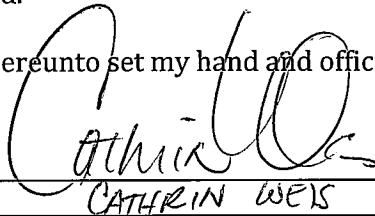 ereunto set my hand and offic
Cathrin
CATHRIN WEIS